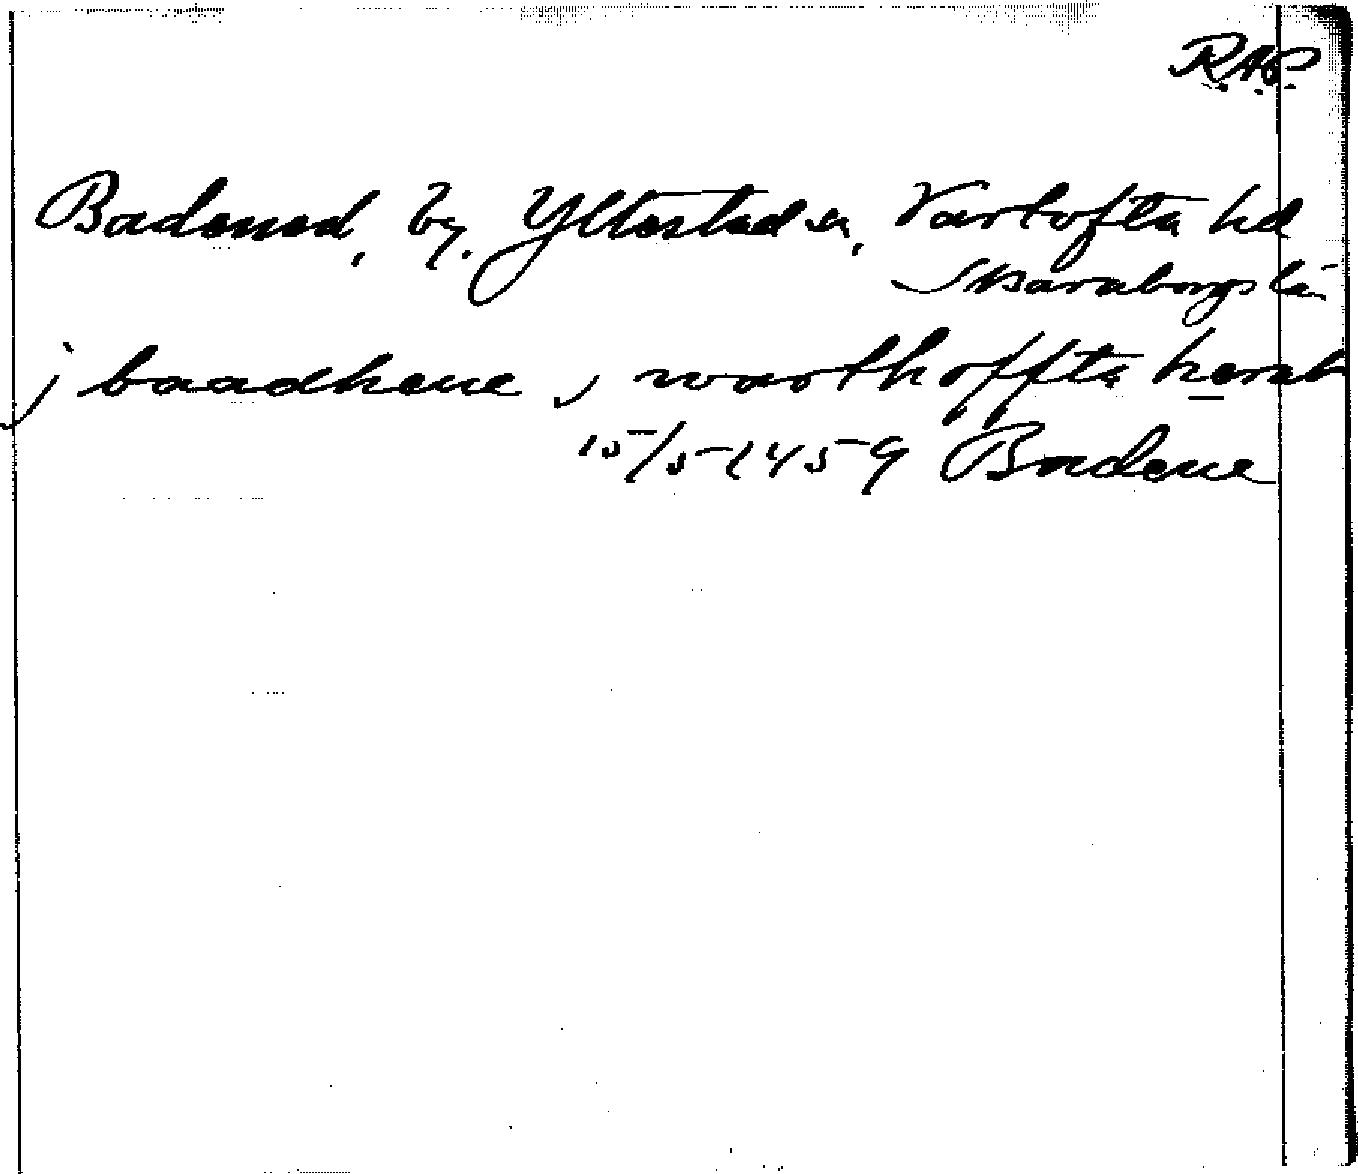 R.A.P.
Badened, by, Yllestad sn, Vartofta hd
Skaraborgs län
j baadhene, j warthoffta herat
15/5 1459 Badene